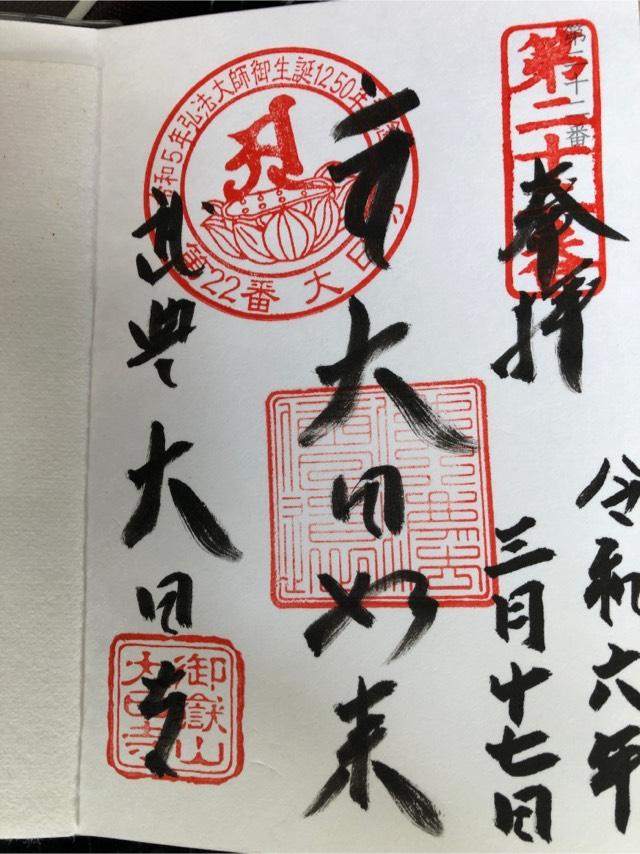 令和六年
三月十七日
第二十二番
第二十二番
奉拝
大日如来
令和5年弘法大師御生誕1250年
第22番 大日寺
大日寺
御嶽山
大日寺